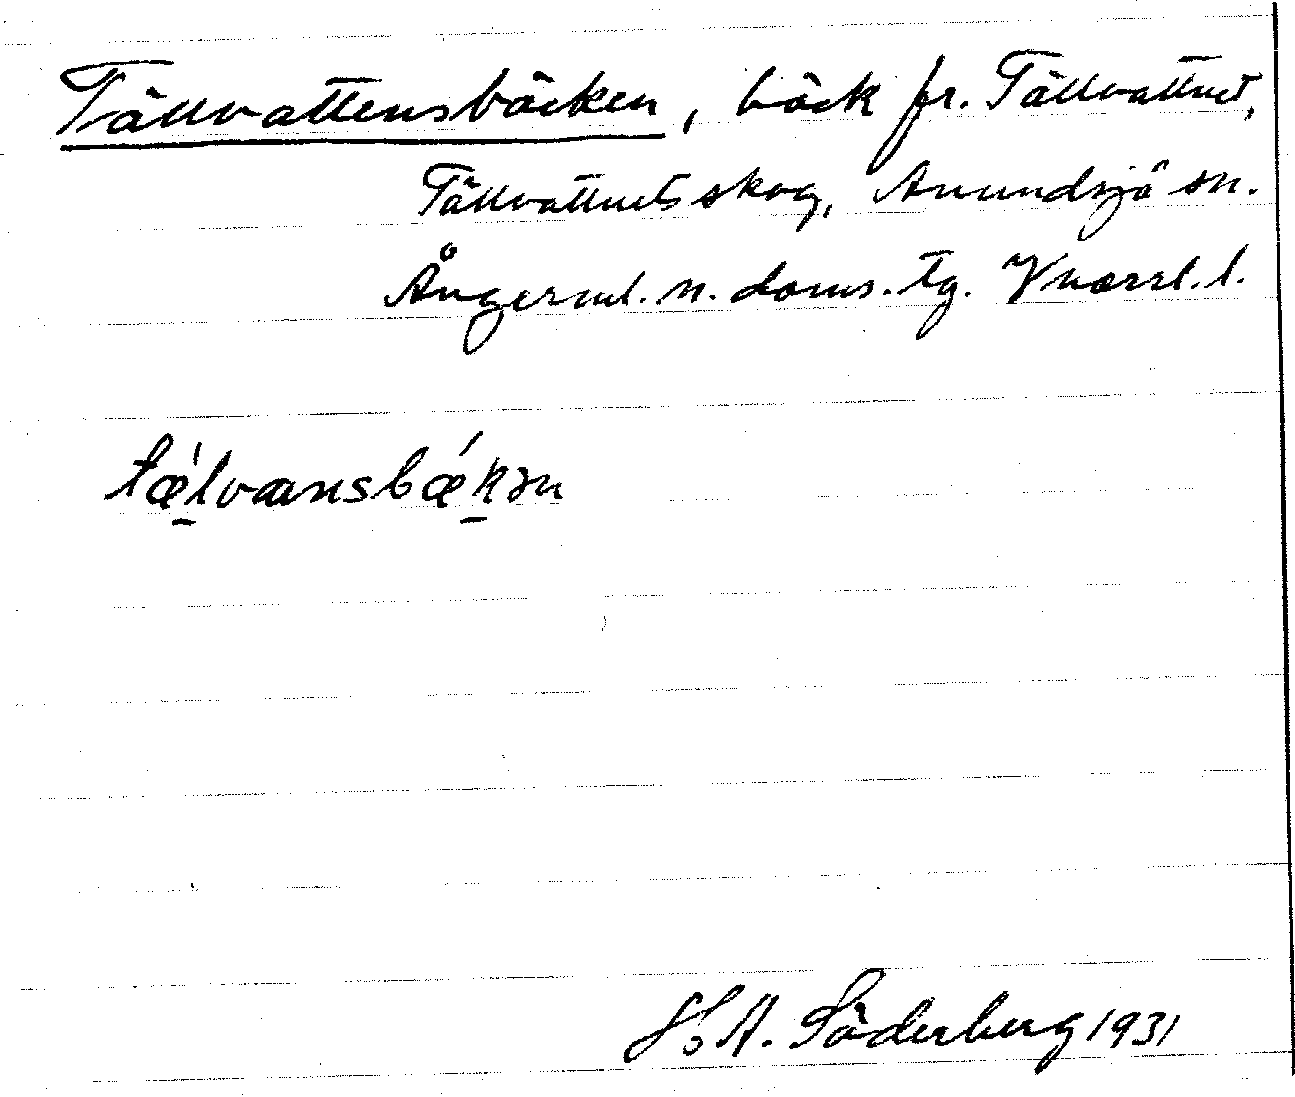 Tällvattensbäcken, bäck fr. Tällvattnet,
Tällvattnets skog, Anundsjö sn.
Ångerml. n. doms. tg. Vnorrl. l.
tǽ̠lvansbǽ̠kən
H. A. Söderberg 1931